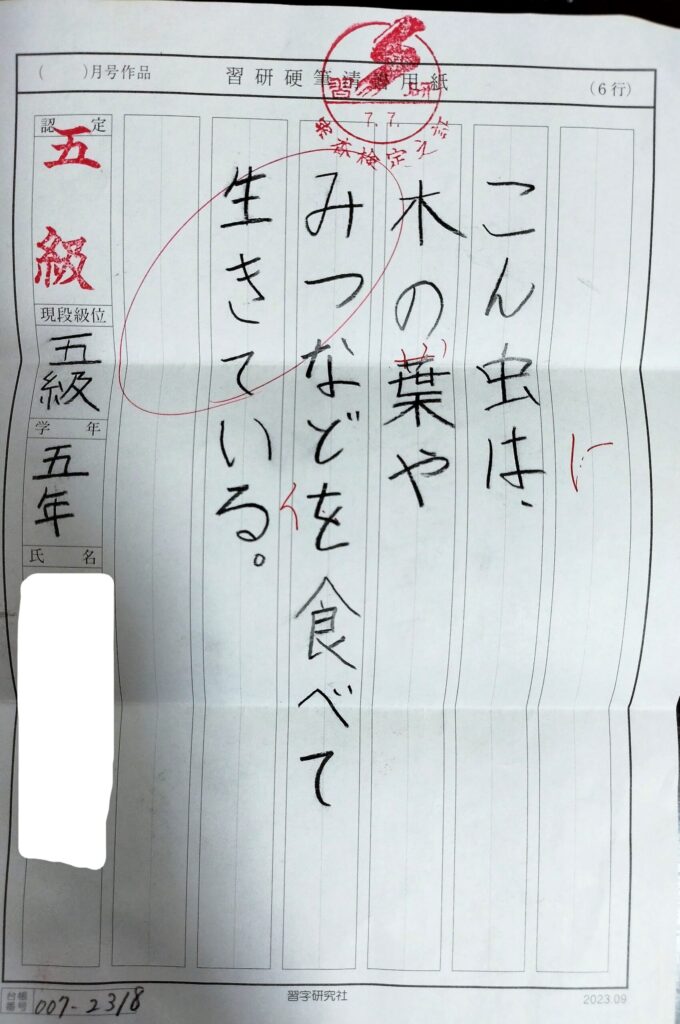 （　　）月号作品
習研硬筆清書用紙
（6行）
習研
7.7.
こん虫は、
木の葉や
みつなどを食べて
生きている。
認定
五級
現段級位
五級
学年
五年
氏名
台帳番号
007-2318
習字研究社
2023.09